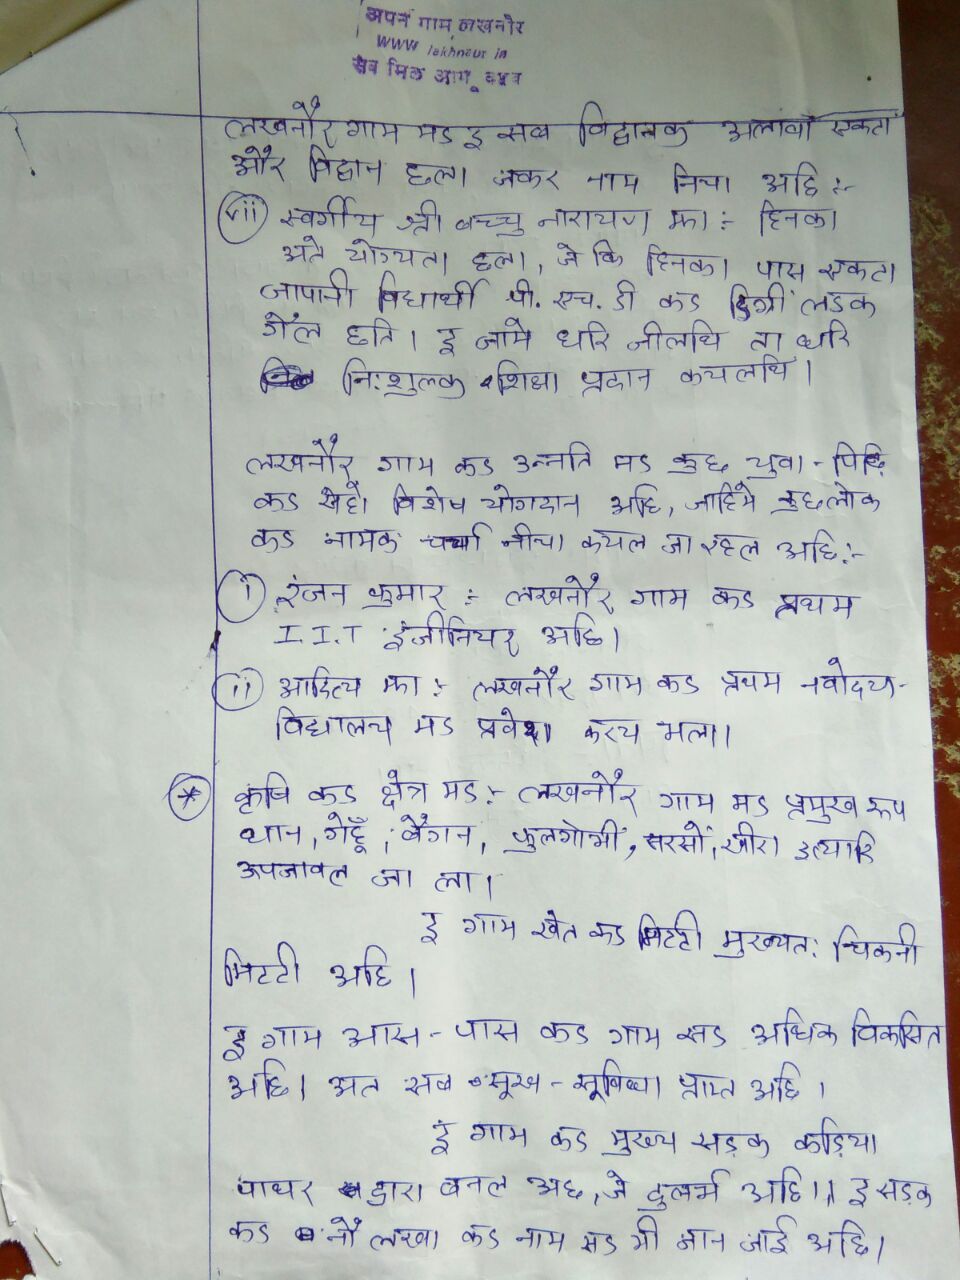 अपन गाम लखनौर
www lakhnaur in
सब मिल आगू बढ़ब
लखनौर गाम मड इ सब विद्वानक अलावा एकटा
और विद्वान छला जकर नाम निचा अछि :-
(vii) स्वर्गीय श्री बच्चु नारायण झा :- हिनका
अते योग्यता छला, जे कि हिनका पास एकटा
जापानी विद्यार्थी पी. एच. डी कड डिग्री लडक
गेल छति। इ जामे धरि जीलथि ता धरि
नि:शुल्क शिक्षा प्रदान कयलथि।
लखनौर गाम कड उन्नति मड कुछ युवा - पिढि
कड सेहो विशेष योगदान अछि, जाहिमे कुछलोक
कड नामक चर्चा नीचा कयल जा रहल अछि :-
(i) रंजन कुमार :- लखनौर गाम कड प्रथम
I.I.T इंजीनियर अछि।
(ii) आदित्य झा :- लखनौर गाम कड प्रथम नवोदय-
विद्यालय मड प्रवेश करय भला।
* कृषि कड क्षेत्र मड :- लखनौर गाम मड प्रमुख रूप
धान, गेहूँ, बैंगन, फुलगोभी, सरसों, खीरा इत्यादि
उपजावल जा ला।
इ गाम खेत कड मिटटी मुख्यत: चिकनी
मिटटी अछि।
इ गाम आस - पास कड गाम सड अधिक विकसित
अछि। अत सब सूख - सूविधा प्राप्त अछि।
इ गाम कड मुख्य सड़क कड़िया
पाथर द्वारा बनल अछ, जे दुलर्भ अछि। इ सड़क
कड नौ लखा कड नाम सड भी जान जाई अछि।